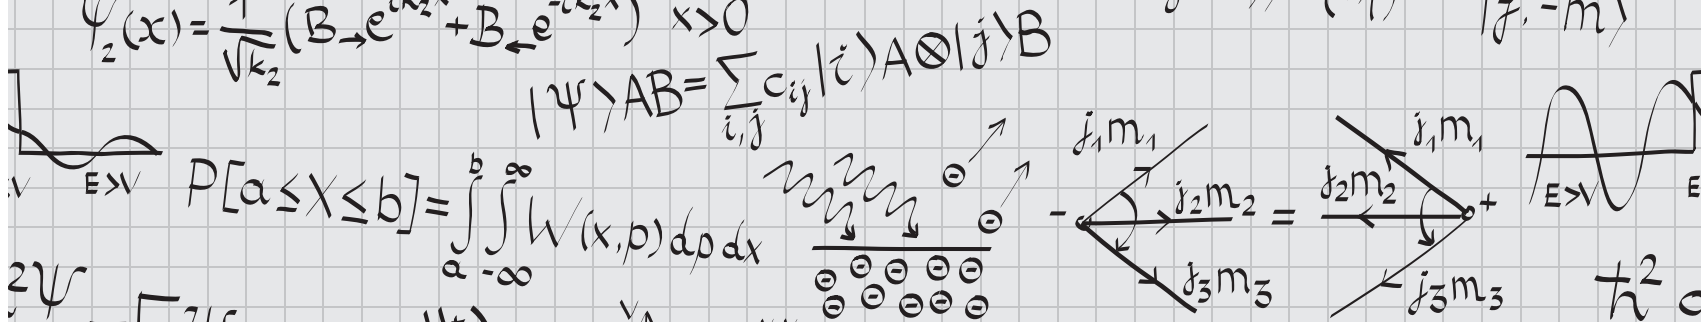 ψ₂(x) = 1/√k₂ (B→ e^{ik₂x} + B← e^{-ik₂x}) x>0
|j, -m⟩
|Ψ⟩AB = ∑_{i,j} c_{ij} |i⟩A⊗|j⟩B
E>V
P[a≤X≤b] = ∫_a^b ∫_{-∞}^{∞} W(x,p) dp dx
⊖ ⊖
⊖ ⊖ ⊖ ⊖ ⊖
⊖ ⊖ ⊖ ⊖ ⊖
j₁m₁
- j₂m₂ =
j₃m₃
j₁m₁
j₂m₂ +
j₃m₃
E>V
E
²Ψ
ħ²